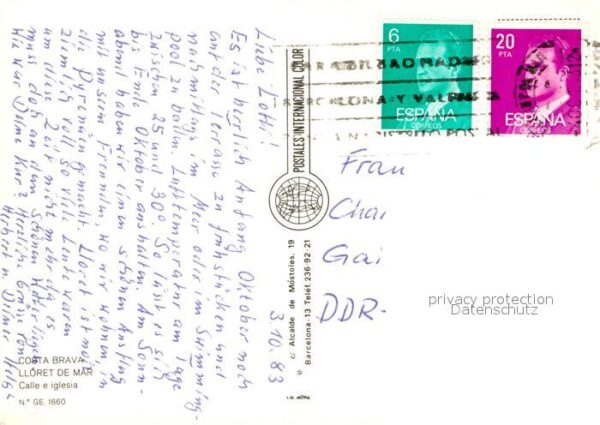 6
PTA
20
PTA
ESPAÑA
CORREOS
ESPAÑA
CORREOS
BILBAO MADR
BARCELONA Y VALENCIA
DISTRITO POSTAL
3.10.83
Liebe Lotti!
Es ist herrlich Anfang Oktober noch
auf der Terrasse zu frühstücken und
nachmittags im Meer oder im Swimming-
pool zu baden. Lufttemperatur am Tage
zwischen 25 und 30°. So läßt es sich
bis Ende Oktober aushalten. Am Sonn-
abend haben wir einen schönen Ausflug
mit unseren Freunden, wo wir wohnen, in
die Pyrenäen gemacht. Lloret ist noch
ziemlich voll. So viele Leute waren
um diese Zeit nicht mehr da, es
muß doch an dem schönen
Wie war Deine Kur? Herzliche Grüße von
Herbert u. Deiner
Frau
Chai
Gai
DDR-
POSTALES INTERNACIONAL COLOR
c/ Alcalde de Móstoles, 19
Barcelona-13 Teléf. 236-92-21
privacy protection
Datenschutz
COSTA BRAVA
LLORET DE MAR
Calle e iglesia
N.º GE. 1660